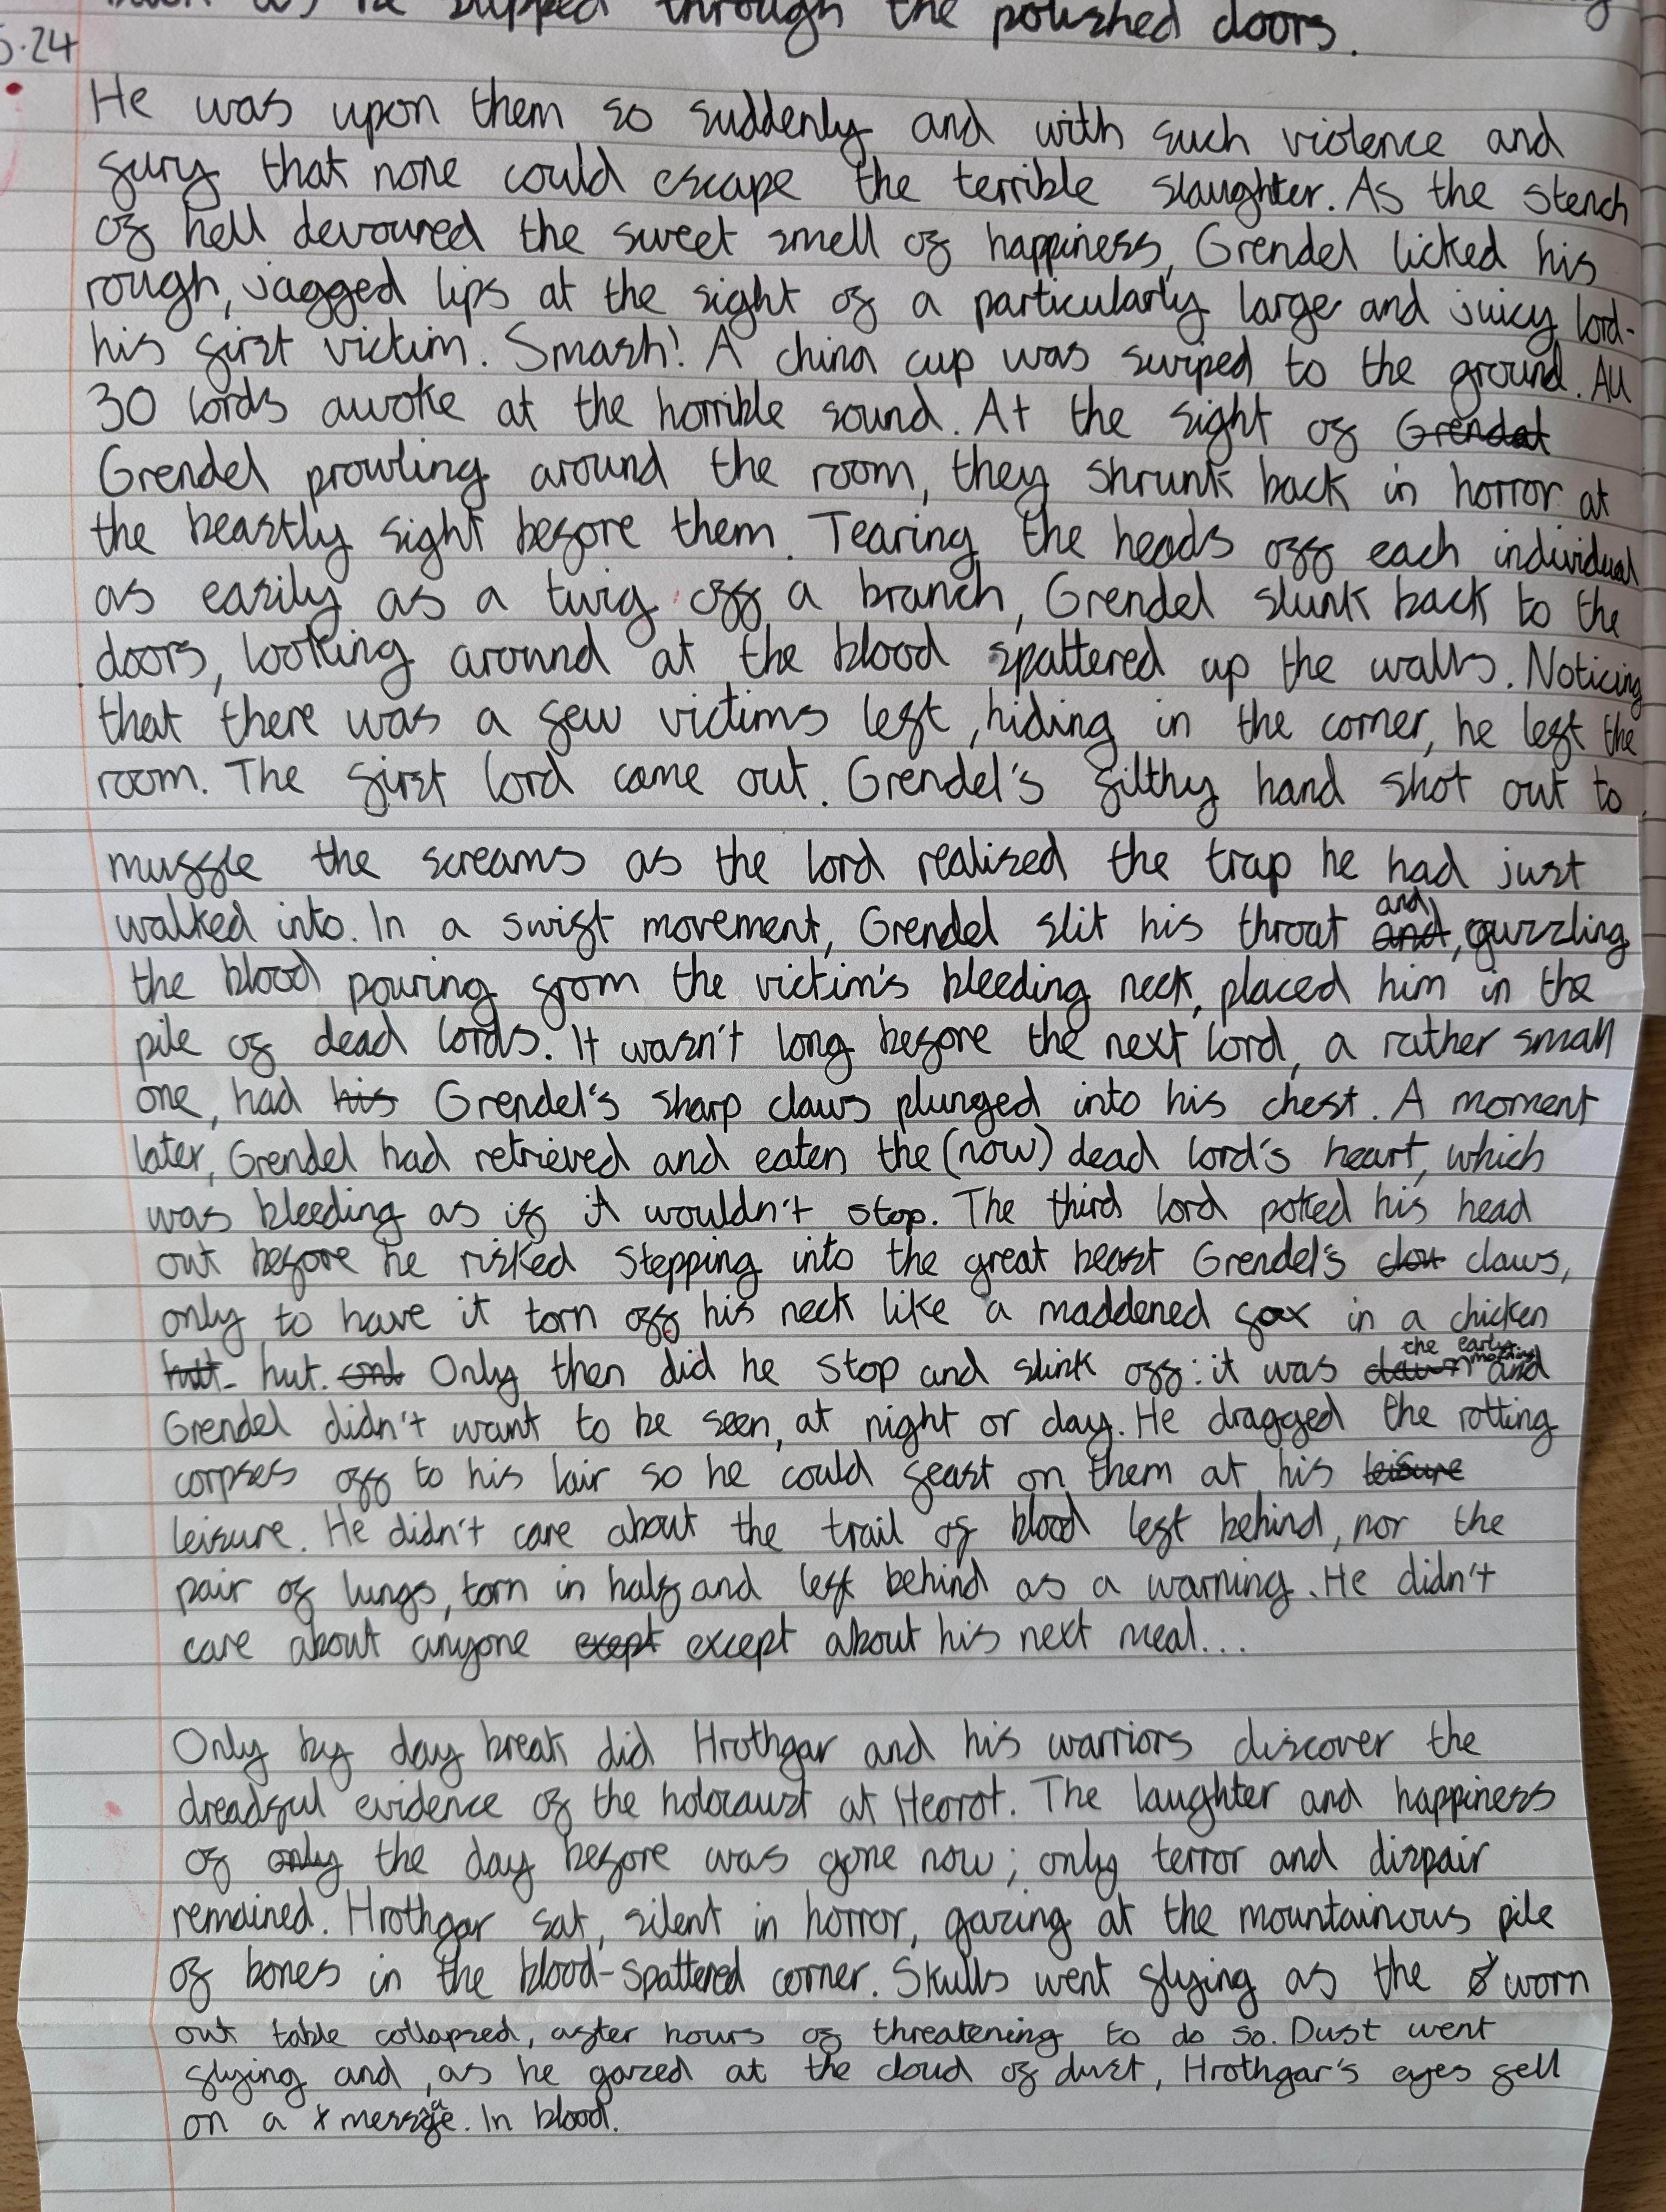 he slipped through the polished doors.
5.24
He was upon them so suddenly and with such violence and
fury that none could escape the terrible slaughter. As the stench
of hell devoured the sweet smell of happiness, Grendel licked his
rough, jagged lips at the sight of a particularly large and juicy lord-
his first victim. Smash! A china cup was swiped to the ground. All
30 lords awoke at the horrible sound. At the sight of Grendal
Grendel prowling around the room, they shrunk back in horror at
the beastly sight before them. Tearing the heads off each individual
as easily as a twig off a branch, Grendel slunk back to the
doors, looking around at the blood spattered up the walls. Noticing
that there was a few victims left, hiding in the corner, he left the
room. The first lord came out. Grendel's filthy hand shot out to
muffle the screams as the lord realised the trap he had just
walked into. In a swift movement, Grendel slit his throat and and, guzzling
the blood pouring from the victim's bleeding neck, placed him in the
pile of dead lords. It wasn't long before the next lord, a rather small
one, had his Grendel's sharp claws plunged into his chest. A moment
later, Grendel had retrieved and eaten the (now) dead lord's heart, which
was bleeding as if it wouldn't stop. The third lord poked his head
out before he risked stepping into the great beast Grendel's claws,
only to have it torn off his neck like a maddened fox in a chicken
hut. Only then did he stop and slink off: it was dawn the early morning and
Grendel didn't want to be seen, at night or day. He dragged the rotting
corpses off to his lair so he could feast on them at his leisure
leisure. He didn't care about the trail of blood left behind, nor the
pair of lungs, torn in half and left behind as a warning. He didn't
care about anyone exept except about his next meal...
Only by day break did Hrothgar and his warriors discover the
dreadful evidence of the holocaust at Heorot. The laughter and happiness
of only the day before was gone now; only terror and dispair
remained. Hrothgar sat, silent in horror, gazing at the mountainous pile
of bones in the blood-spattered corner. Skulls went flying as the worn
out table collapsed, after hours of threatening to do so. Dust went
flying and, as he gazed at the cloud of dust, Hrothgar's eyes fell
on a message. In blood.